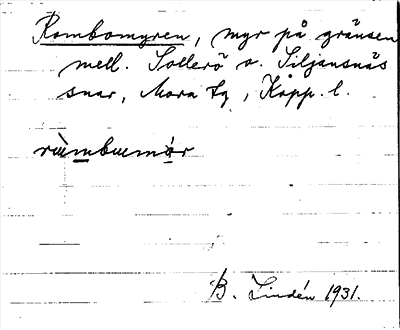 Rombomyren, myr på gränsen
mell. Sollerö o. Siljansnäs
snar, Mora tg, Kopp. l.
B. Lindén 1931.